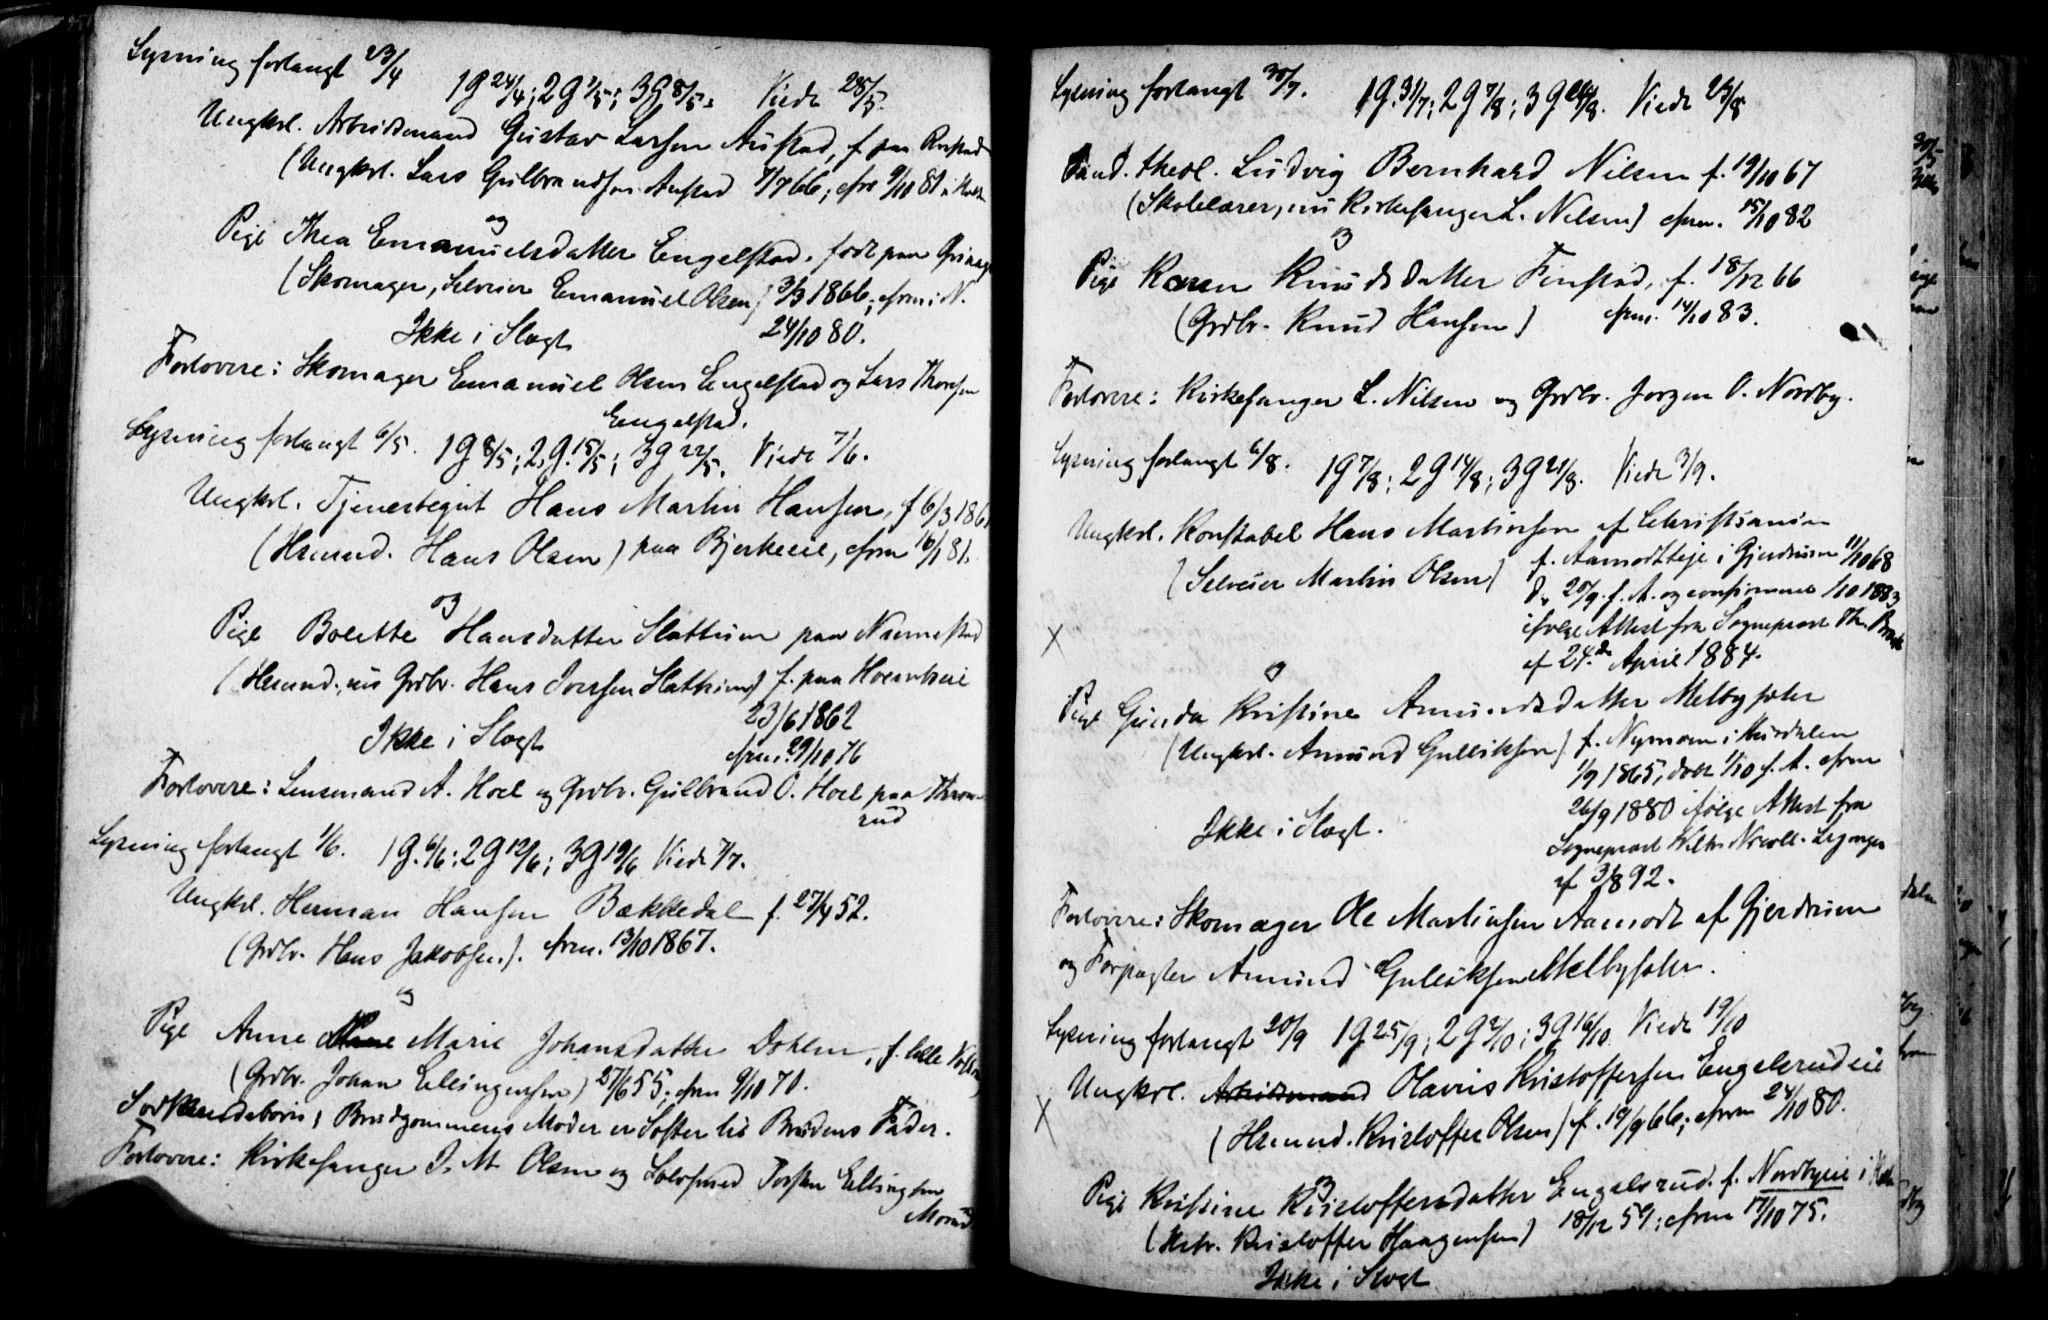 Lysning forlangt 23/4
1 g 24/4; 2 g 1/5; 3 g 8/5. Viede 28/5.
Ungkrl. Arbeidsmand Gustav Larsen Austad, f paa
(Ungkrl. Lars Gulbrandsen Austad 7/7 66; cfrm 9/10 81 i
og
Pige Thea Emanuelsdatter Engelstad. født paa
(Skomager, Selveier Emanuel Olsen) 3/3 1866; cfrm i N.
Ikke i Slægt 24/10 80.
Forlovere: Skomager Emanuel Olsen Engelstad og Lars Thorsen
Engelstad.
Lysning forlangt 6/5. 1 g 8/5; 2 g. 15/5; 3 g 22/5. Viede 7/6.
Ungkrl. Tjenestegut Hans Martin Hansen, f 6/3 186
(Husmd. Hans Olsen) paa Bjerkeeie, cfrm 16/1 81.
og
Pige Bolette Hansdatter Slattum paa Nannestad
(Husmd., nu Grdbr. Hans Iversen Slattum) f. paa
Ikke i Slægt 23/6 1862
cfrm. 29/10 76
Forlovere: Lensmand A. Hoel og Grdbr. Gulbrand O. Hoel paa Throns
rud
Lysning forlangt 1/6. 1 g. 6/6; 2 g 12/6; 3 g 19/6 Viede 7/7.
Ungkrl. Herman Hansen Bækkedal f. 27/4 52.
(Grdbr. Hans Jakobsen). cfrm. 13/10 1867.
og
Pige Anne Marie Johansdatter Dahlen, f. lille
(Grdbr. Johan Ellingensen) 27/6 55; cfrm 9/10 70.
Sødskendebørn; Brudgommens Moder er Søster til Brudens Fader.
Forlovere: Kirkesanger J. M. Olsen og Torsten Ellingsen
Lysning forlangt 30/7. 1 g. 31/7; 2 g 7/8; 3 g 14/8. Viede 25/8
Cand. theol. Ludvig Bernhard Nilsen f. 19/10 67
(Skolelærer, nu Kirkesanger L. Nilsen) cfrm. 15/10 82
og
Pige Karen Knudsdatter Finstad, f. 18/12 66
(Grdbr. Knud Hansen) cfrm. 14/10 83.
Forlovere: Kirkesanger L. Nilsen og Grdbr. Jørgen O. Nordby.
Lysning forlangt 6/8. 1 g 7/8; 2 g 14/8; 3 g 21/8. Viede 3/9.
Ungkrl. Konstabel Hans Martinsen af Christiania
(Selveier Martin Olsen) f. Aamodtteje i Gjerdrum 11/10 68
d. 20/9. f. A. og confirmeret 1/10 1883
ifølge Attest fra Sogneprest Th.
X
af 24.de April 1884.
og
Pige Gunda Kristine Amundsdatter Melbysæter
(Ungkrl. Amund Gulliksen) f. Nymoen i Hurdalen
1/9 1865, døbt 1/10 f. A. cfrm
26/9 1880 ifølge Attest fra
Ikke i Slægt. Sogneprest
af 3/8 92.
Forlovere: Skomager Ole Martinsen Aamodt af Gjerdrum
og Forpagter Amund Guliksen Melbysæter.
Lysning forlangt 20/9 1 g 25/9; 2 g 2/10; 3 g 16/10 Viede 19/10
Ungkrl. Arbeidsmand Olavus Kristoffersen Engelsrudeie
X (Husmd. Kristoffer Olsen) f. 19/9 66; cfrm 24/10 80.
og
Pige Kristine Kristoffersdatter Engelsrud. f. Nordbyeie i
(Grdbr. Kristoffer Haagensen) 18/12 59; cfrm 17/10 75.
Ikke i Slægt